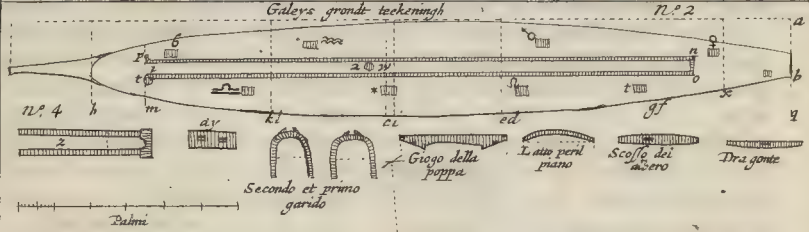 Galeys grondt teekeningh
N.º 2
a
6
p
n
1
2
w
t
o
t
b
N.º 4
h
m
k i
c i
e d
g f
x
q
z
d y
Secondo et primo
garido
Giogo della
poppa
Latto per il
piano
Scosso dei
albero
Dragonte
Palmi